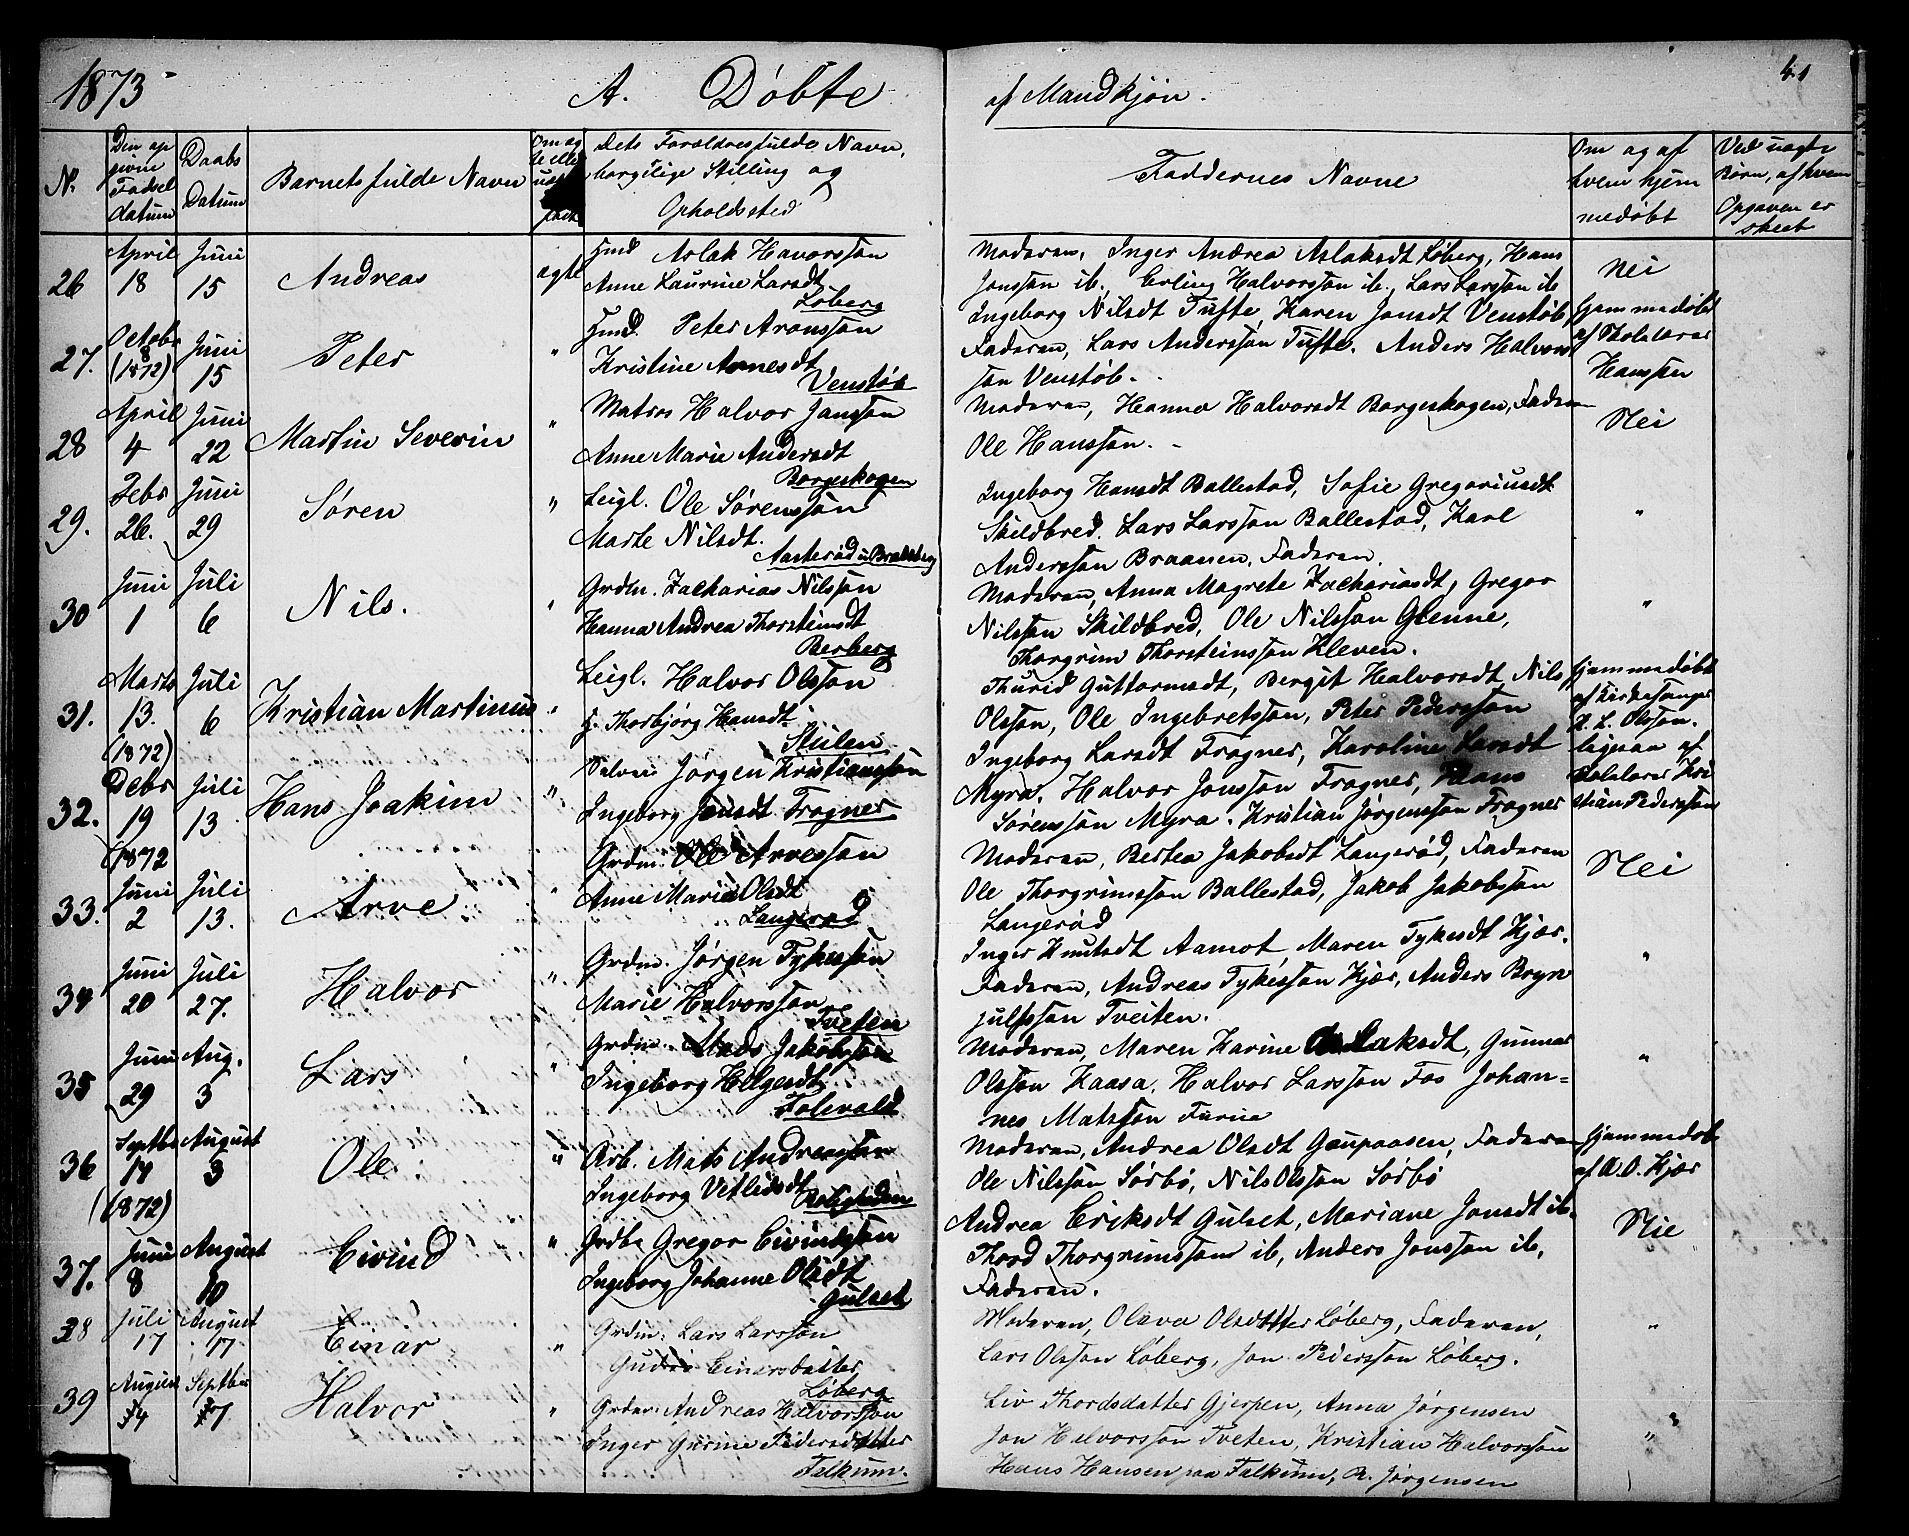 1873
A. Døbte
af Mandkjøn.
41
N.
Den op
givne
Fødsel
datum
Daabs
Datum
Barnets fulde Navn
Om æg
te elle
uægte
født
Dets Forældres fulde Navn,
borgelige Stilling og
Opholdssted
Faddernes Navne
Om og af
hvem hjem
medøbt
Ved uægte
Børn, af hvem
Opgaven er
skeet
26 April 18 Juni 15 Andreas ægte
Hmd Aslak Havorssøn
Anne Laurine Larsdt
Løberg
Moderen, Inger Andrea Aslaksdt Løberg, Hans
Jonssøn ib., Erling Halvorssøn ib., Lars Larssøn ib
Nei
27. Octobr 8 (1872) Juni 15 Peter "
Hmd. Peter Aronssøn
Kristine Arnesdt
Venstøb
Ingeborg Nilsdt Tufte, Karen Jonsdt Venstøb,
Faderen, Lars Anderssøn Tufte. Anders Halvors
søn Venstøb.
Hjemmedøbt
af Skolelærer
Hanssen
28 April 4 Juni 22 Martin Severin "
Matros Halvor Janssøn
Anne Marie Andersdt
Borgeskogen
Moderen, Hanna Halvorsdt Borgeskogen, Faderen
Ole Hanssøn.
Nei
29. Febr 26. Juni 29 Søren "
Leigl. Ole Sørenssøn
Marte Nilsdt.
Aasterød u Bratsberg
Ingeborg Hansdt Ballestad, Sofie Gregoriusdt
Skildbred. Lars Larssøn Ballestad, Karl
Anderssøn Braanen, Faderen.
"
30 Juni 1 Juli 6 Nils. "
Grdm. Zacharias Nilssøn
Hanna Andrea Thorsteinsdt
Berberg
Moderen, Anna Magrete Zachariasdt, Gregor
Nilssøn Skildbred, Ole Nilssøn Glenne,
Thorgrim Thorsteinssøn Kleven.
"
31. Marts 13. (1872) Juli 6 Kristian Martinus "
Leigl. Halvor Olssøn
H. Thorbjørg Hansdt
Stulen
Thurid Guttormsdt, Bergit Halvorsdt, Nils
Olssøn, Ole Ingebretssøn, Peter Pederssøn
Hjemmedøbt
af Kirkesanger
L. L. Olssøn.
32. Debr 19 (1872 Juli 13 Hans Joakim "
Selvei Jørgen Kristianssøn
Ingeborg Jonsdt Frogner
Ingeborg Larsdt Frogner, Karoline Larsdt
Myra, Halvor Jonssøn Frogner, Hans
Sørenssøn Myra. Kristian Jørgenssøn Frogner
ligesaa af
Skolelærer Kri
stian Pederssøn
33. Juni 2 Juli 13. Arve "
Grdm. Ole Arvessøn
Anne Maria Olsdt
Langerød
Moderen, Bertea Jakobsdt Langerød, Faderen
Ole Thorgrimssøn Ballestad, Jakob Jakobssøn
Langerød
Nei
34 Juni 20 Juli 27. Halvor "
Grdm. Jørgen Tykessøn
Marie Halvorssøn
Tveten
Inger Knutsdt Aamot, Maren Tykesdt Kjær.
Faderen, Andreas Tykessøn Kjær, Anders Bryn
julfssøn Tveiten.
"
35 Juni 29 Aug. 3 Lars "
Grdm. Mads Jakobssøn
Ingeborg Helgesdt
Folevald
Moderen, Maren Karine Aslaksdt, Gunnar
Olssøn Kaasa, Halvor Larssøn Fos Johan=
nes Matssøn Furua
"
36 Septbr 17 (1872) August 3 Ole "
Arb. Mats Andreassøn
Ingeborg Vetlisdt
Moderen, Andrea Olsdt Gaupaasen, Faderen
Ole Nilssøn Sørbø, Nils Olssøn Sørbø
Hjemmedøbt
af A. O. Kjær
37. Juni 8 August 10 Eivind "
Grdbr Gregor Eivindssøn
Ingeborg Johanne Olsdt
Gulset
Andrea Eriksdt Gulset, Mariane Jonsdt ib,
Thord Thorgrimssøn ib, Anders Jonssøn ib,
Faderen.
Nie
38 Juli 17 August 17. Einar "
Grdm: Lars Larssøn
Einarsdatter
Løberg
Moderen, Olava Olsdatter Løberg, Faderen,
Lars Olssøn Løberg, Jon Pederssøn Løberg.
"
39 August 4 Septbr 7 Halvor "
Grdbr: Andreas Halvorssøn
Inger Gurine Pedersdatter
Falkum.
Liv Thordsdatter Gjerpen, Anna Jørgensen
Jon Halvorssøn Tveten, Kristian Halvorssøn
Hans Hansen paa Falkum, R. Jørgensen
"